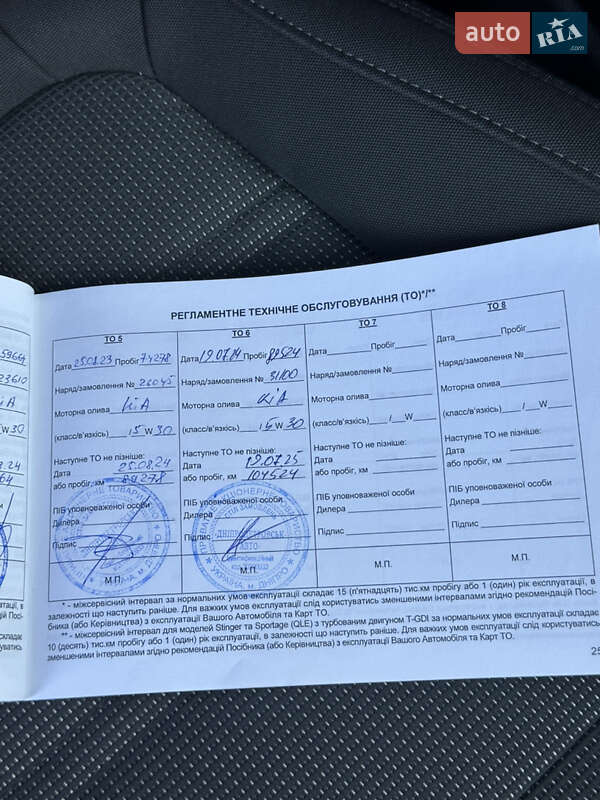 auto RIA .com
РЕГЛАМЕНТНЕ ТЕХНІЧНЕ ОБСЛУГОВУВАННЯ (ТО)*/**
ТО 5
Дата 25.08.23 Пробіг 74278
Наряд/замовлення № 26045
Моторна олива KIA
(класс/в'язкісь) / 5 W 30
Наступне ТО не пізніше:
Дата 25.08.24
або пробіг, км 89278
ПІБ уповноваженої особи
Дилера
Підпис
М.П.
ТО 6
Дата 19.07.24 Пробіг 89524
Наряд/замовлення № 31100
Моторна олива KIA
(класс/в'язкісь) / 5 W 30
Наступне ТО не пізніше:
Дата 19.07.25
або пробіг, км 104524
ПІБ уповноваженої особи
Дилера
Підпис
М.П.
ТО 7
Дата Пробіг
Наряд/замовлення №
Моторна олива
(класс/в'язкісь) / W
Наступне ТО не пізніше:
Дата
або пробіг, км
ПІБ уповноваженої особи
Дилера
Підпис
М.П.
ТО 8
Дата Пробіг
Наряд/замовлення №
Моторна олива
(класс/в'язкісь) / W
Наступне ТО не пізніше:
Дата
або пробіг, км
ПІБ уповноваженої особи
Дилера
Підпис
М.П.
* - міжсервісний інтервал за нормальних умов експлуатації складає 15 (п'ятнадцять) тис.км пробігу або 1 (один) рік експлуатації, в
залежності що наступить раніше. Для важких умов експлуатації слід користуватись зменшеними інтервалами згідно рекомендацій Посі-
бника (або Керівництва) з експлуатації Вашого Автомобіля та Карт ТО.
** - міжсервісний інтервал для моделей Stinger та Sportage (QLE) з турбованим двигуном T-GDI за нормальних умов експлуатації складає
10 (десять) тис.км пробігу або 1 (один) рік експлуатації, в залежності що наступить раніше. Для важких умов експлуатації слід користуватись
зменшеними інтервалами згідно рекомендацій Посібника (або Керівництва) з експлуатації Вашого Автомобіля та Карт ТО.
25